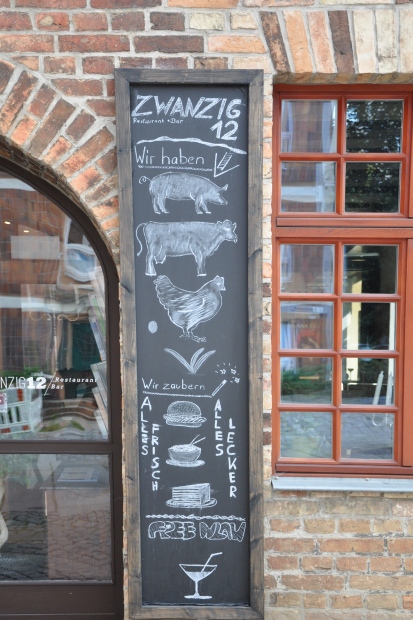 ZWANZIG
12
Restaurant + Bar
Wir haben
Wir zaubern
ALLES
FRISCH
ALLES
LECKER
FREE WLAN
NZIG12 / Restaurant
Bar